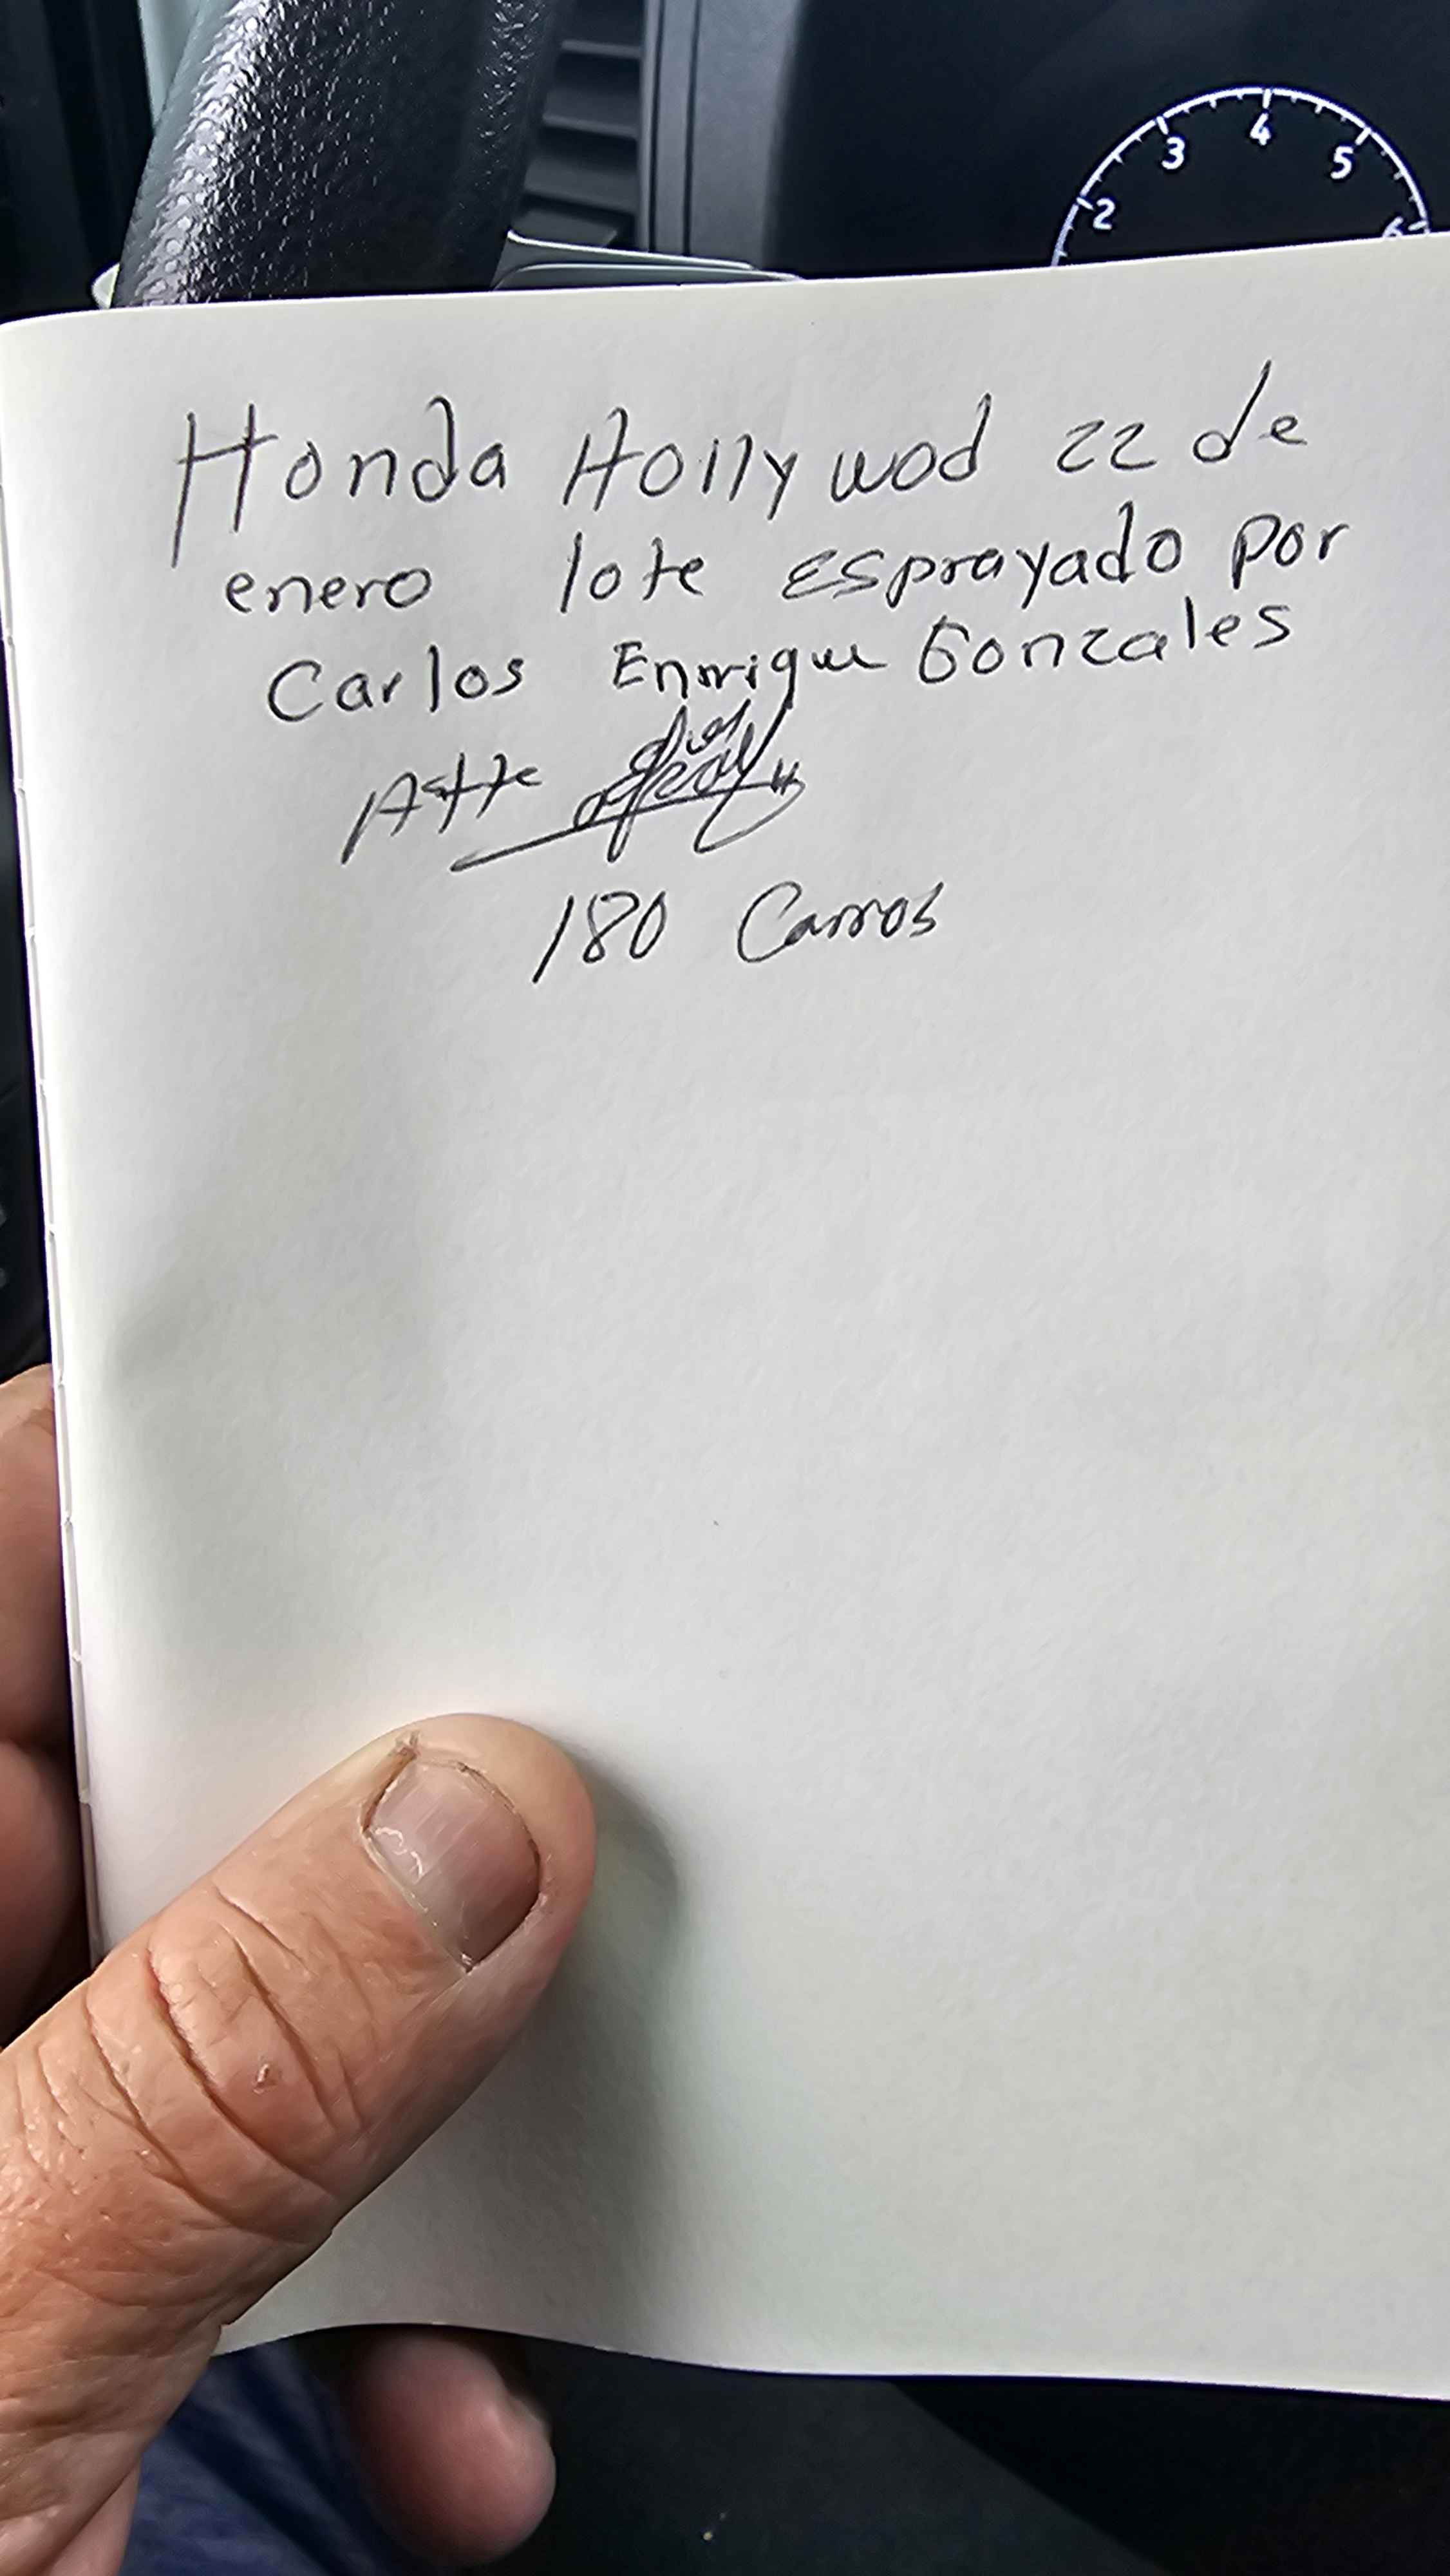 2 3 4 5 6
Honda Hollywod 22 de
enero lote Esprayado por
Carlos Enrrique Gonzales
Atte
180 Carros